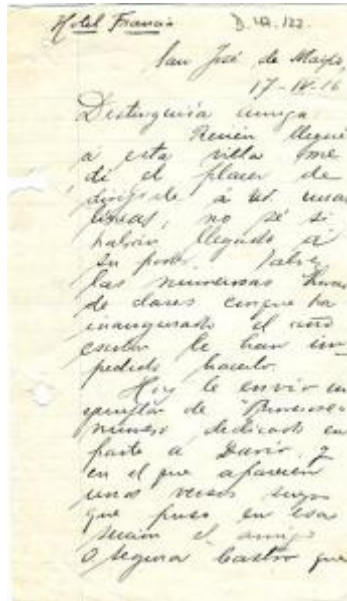 Hotel Francia
San José de Maipo,
17-IV-16
Distinguida amiga:
Recien llegué
a esta villa me
di el placer de
dirigirle á Ud. unas
líneas, no sé si
habrán llegado á
su poder. Talvez
las numerosas horas
de clases con que ha
inaugurado el año
escolar le han im-
pedido hacerlo.
Hoy le envio un
ejemplar de "Primerose"
número dedicado en
parte a Darío y
en el que aparecen
unos versos suyos
que puso en esa
sección el amigo
O Segura Castro que